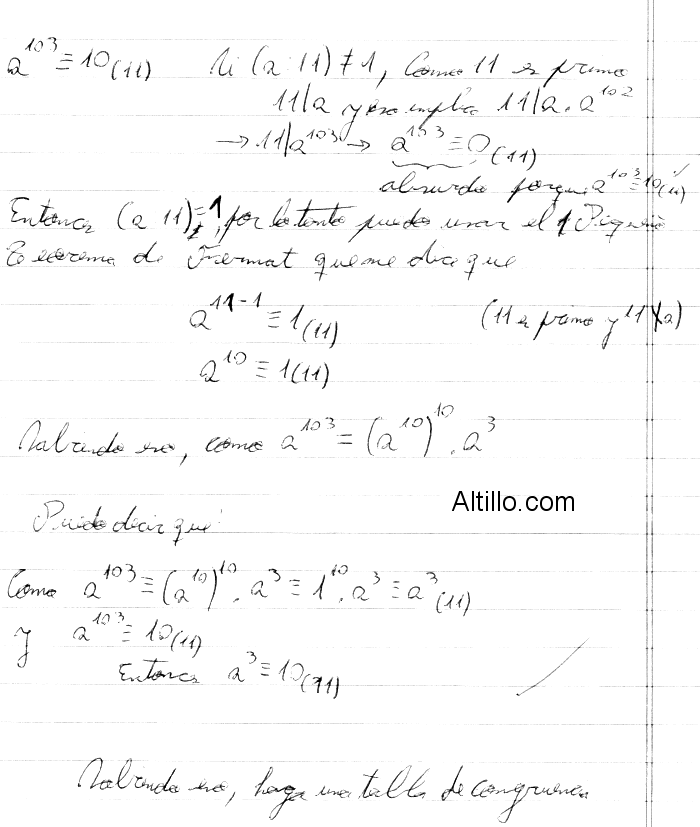 a^103 ≡ 10 (11) Si (a 11) ≠ 1, como 11 es primo
11|a y eso implica 11|a . a^102
→ 11|a^103 → a^103 ≡ 0 (11)
absurdo porque a^103 ≡ 10 (11) ✓
Entonces (a 11) = 1, por lo tanto puedo usar el Pequeño
Teorema de Fermat que me dice que
a^11-1 ≡ 1 (11) (11 es primo y 11 ∤ a)
a^10 ≡ 1 (11)
Sabiendo eso, como a^103 = (a^10)^10 . a^3
Altillo.com
Puedo decir que:
Como a^103 ≡ (a^10)^10 . a^3 ≡ 1^10 . a^3 ≡ a^3 (11)
y a^103 ≡ 10 (11)
Entonces a^3 ≡ 10 (11)
Sabiendo eso, hago una tabla de congruencia